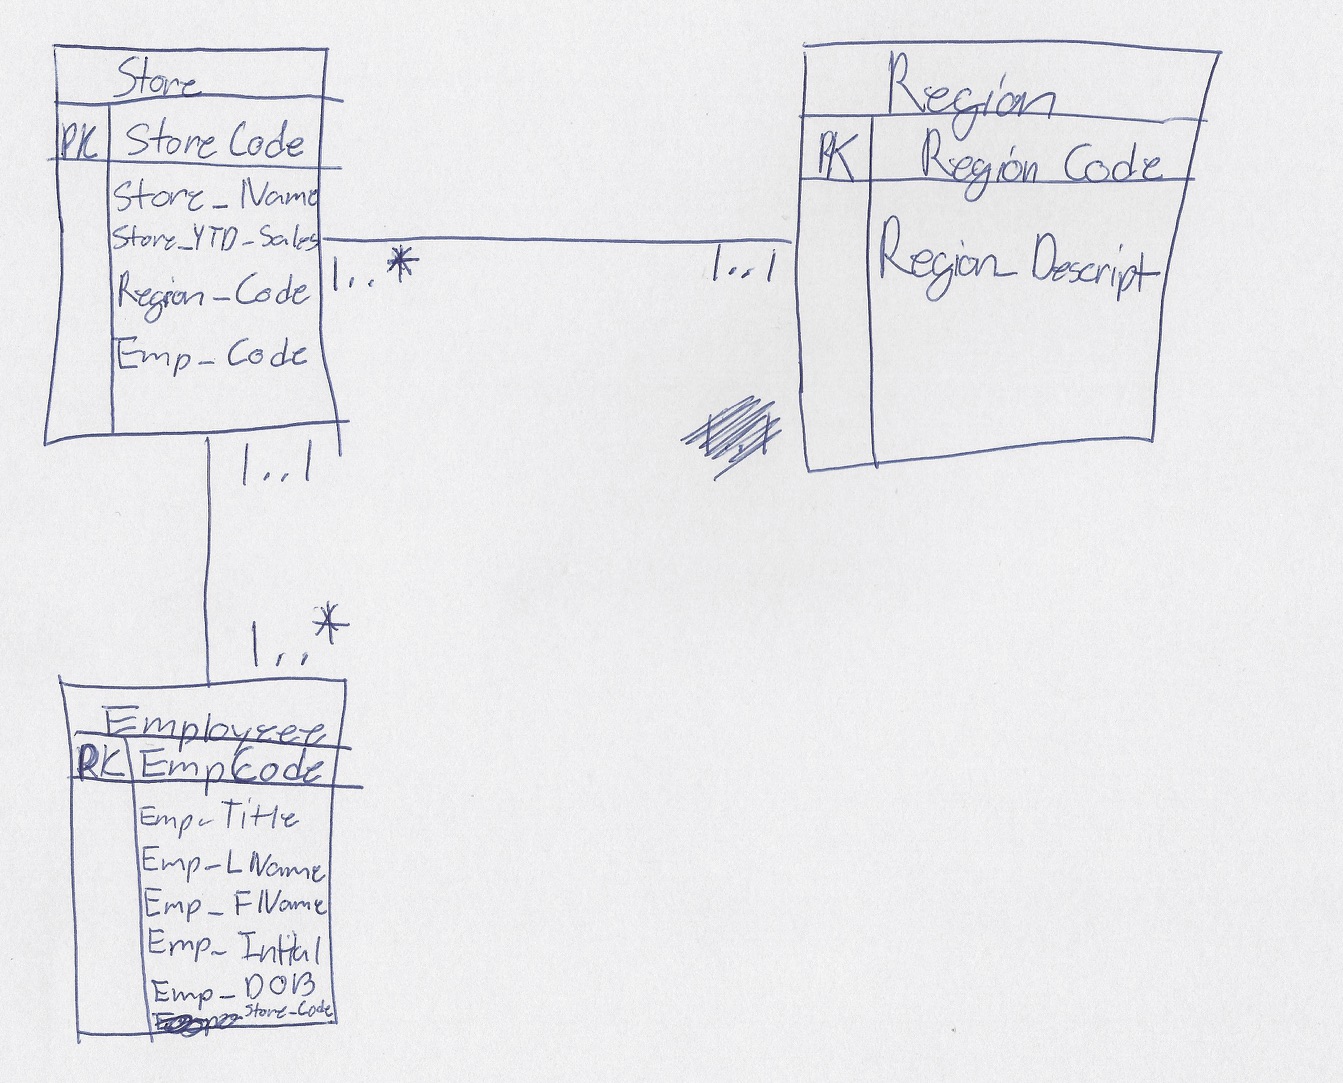 Store
PK Store Code
Store_Name
Store_YTD_Sales
Region_Code
Emp_Code
1..*
1..1
Region
PK Region Code
Region_Descript
1..1
1..*
Employeee
PK EmpCode
Emp_Title
Emp_LName
Emp_FName
Emp_Initial
Emp_DOB
Store_Code